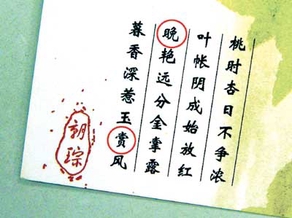 桃时杏日不争浓
叶帐阴成始放红
晚艳远分金掌露
暮香深惹玉赏风
琮